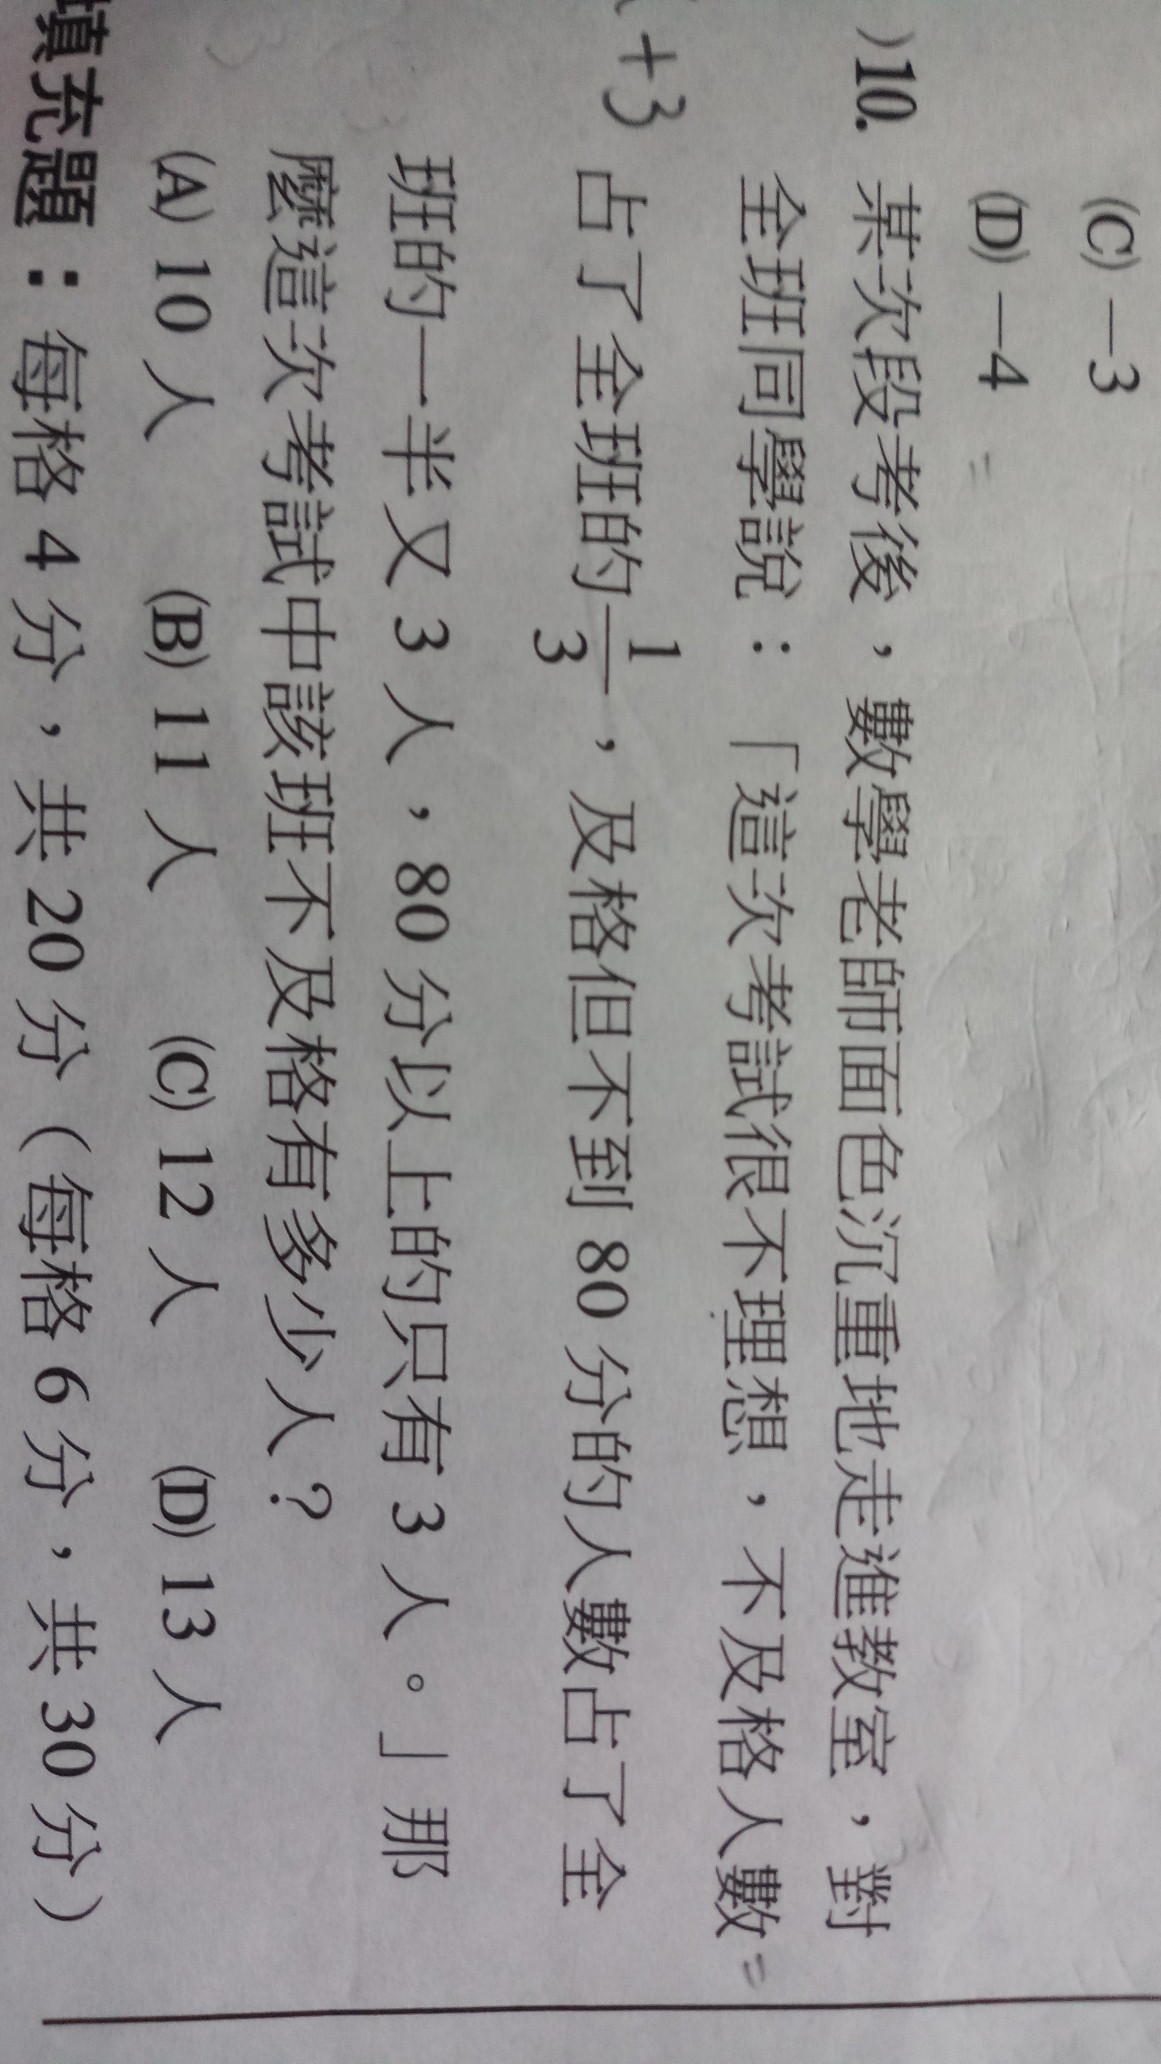 (C) −3
(D) −4
)10. 某次段考後，數學老師面色沉重地走進教室，對
全班同學說：「這次考試很不理想，不及格人數=
+3 占了全班的1/3，及格但不到 80 分的人數占了全
班的一半又 3 人，80 分以上的只有 3 人。」那
麼這次考試中該班不及格有多少人？
(A) 10 人 (B) 11 人 (C) 12 人 (D) 13 人
填充題：每格 4 分，共 20 分（每格 6 分，共 30 分）